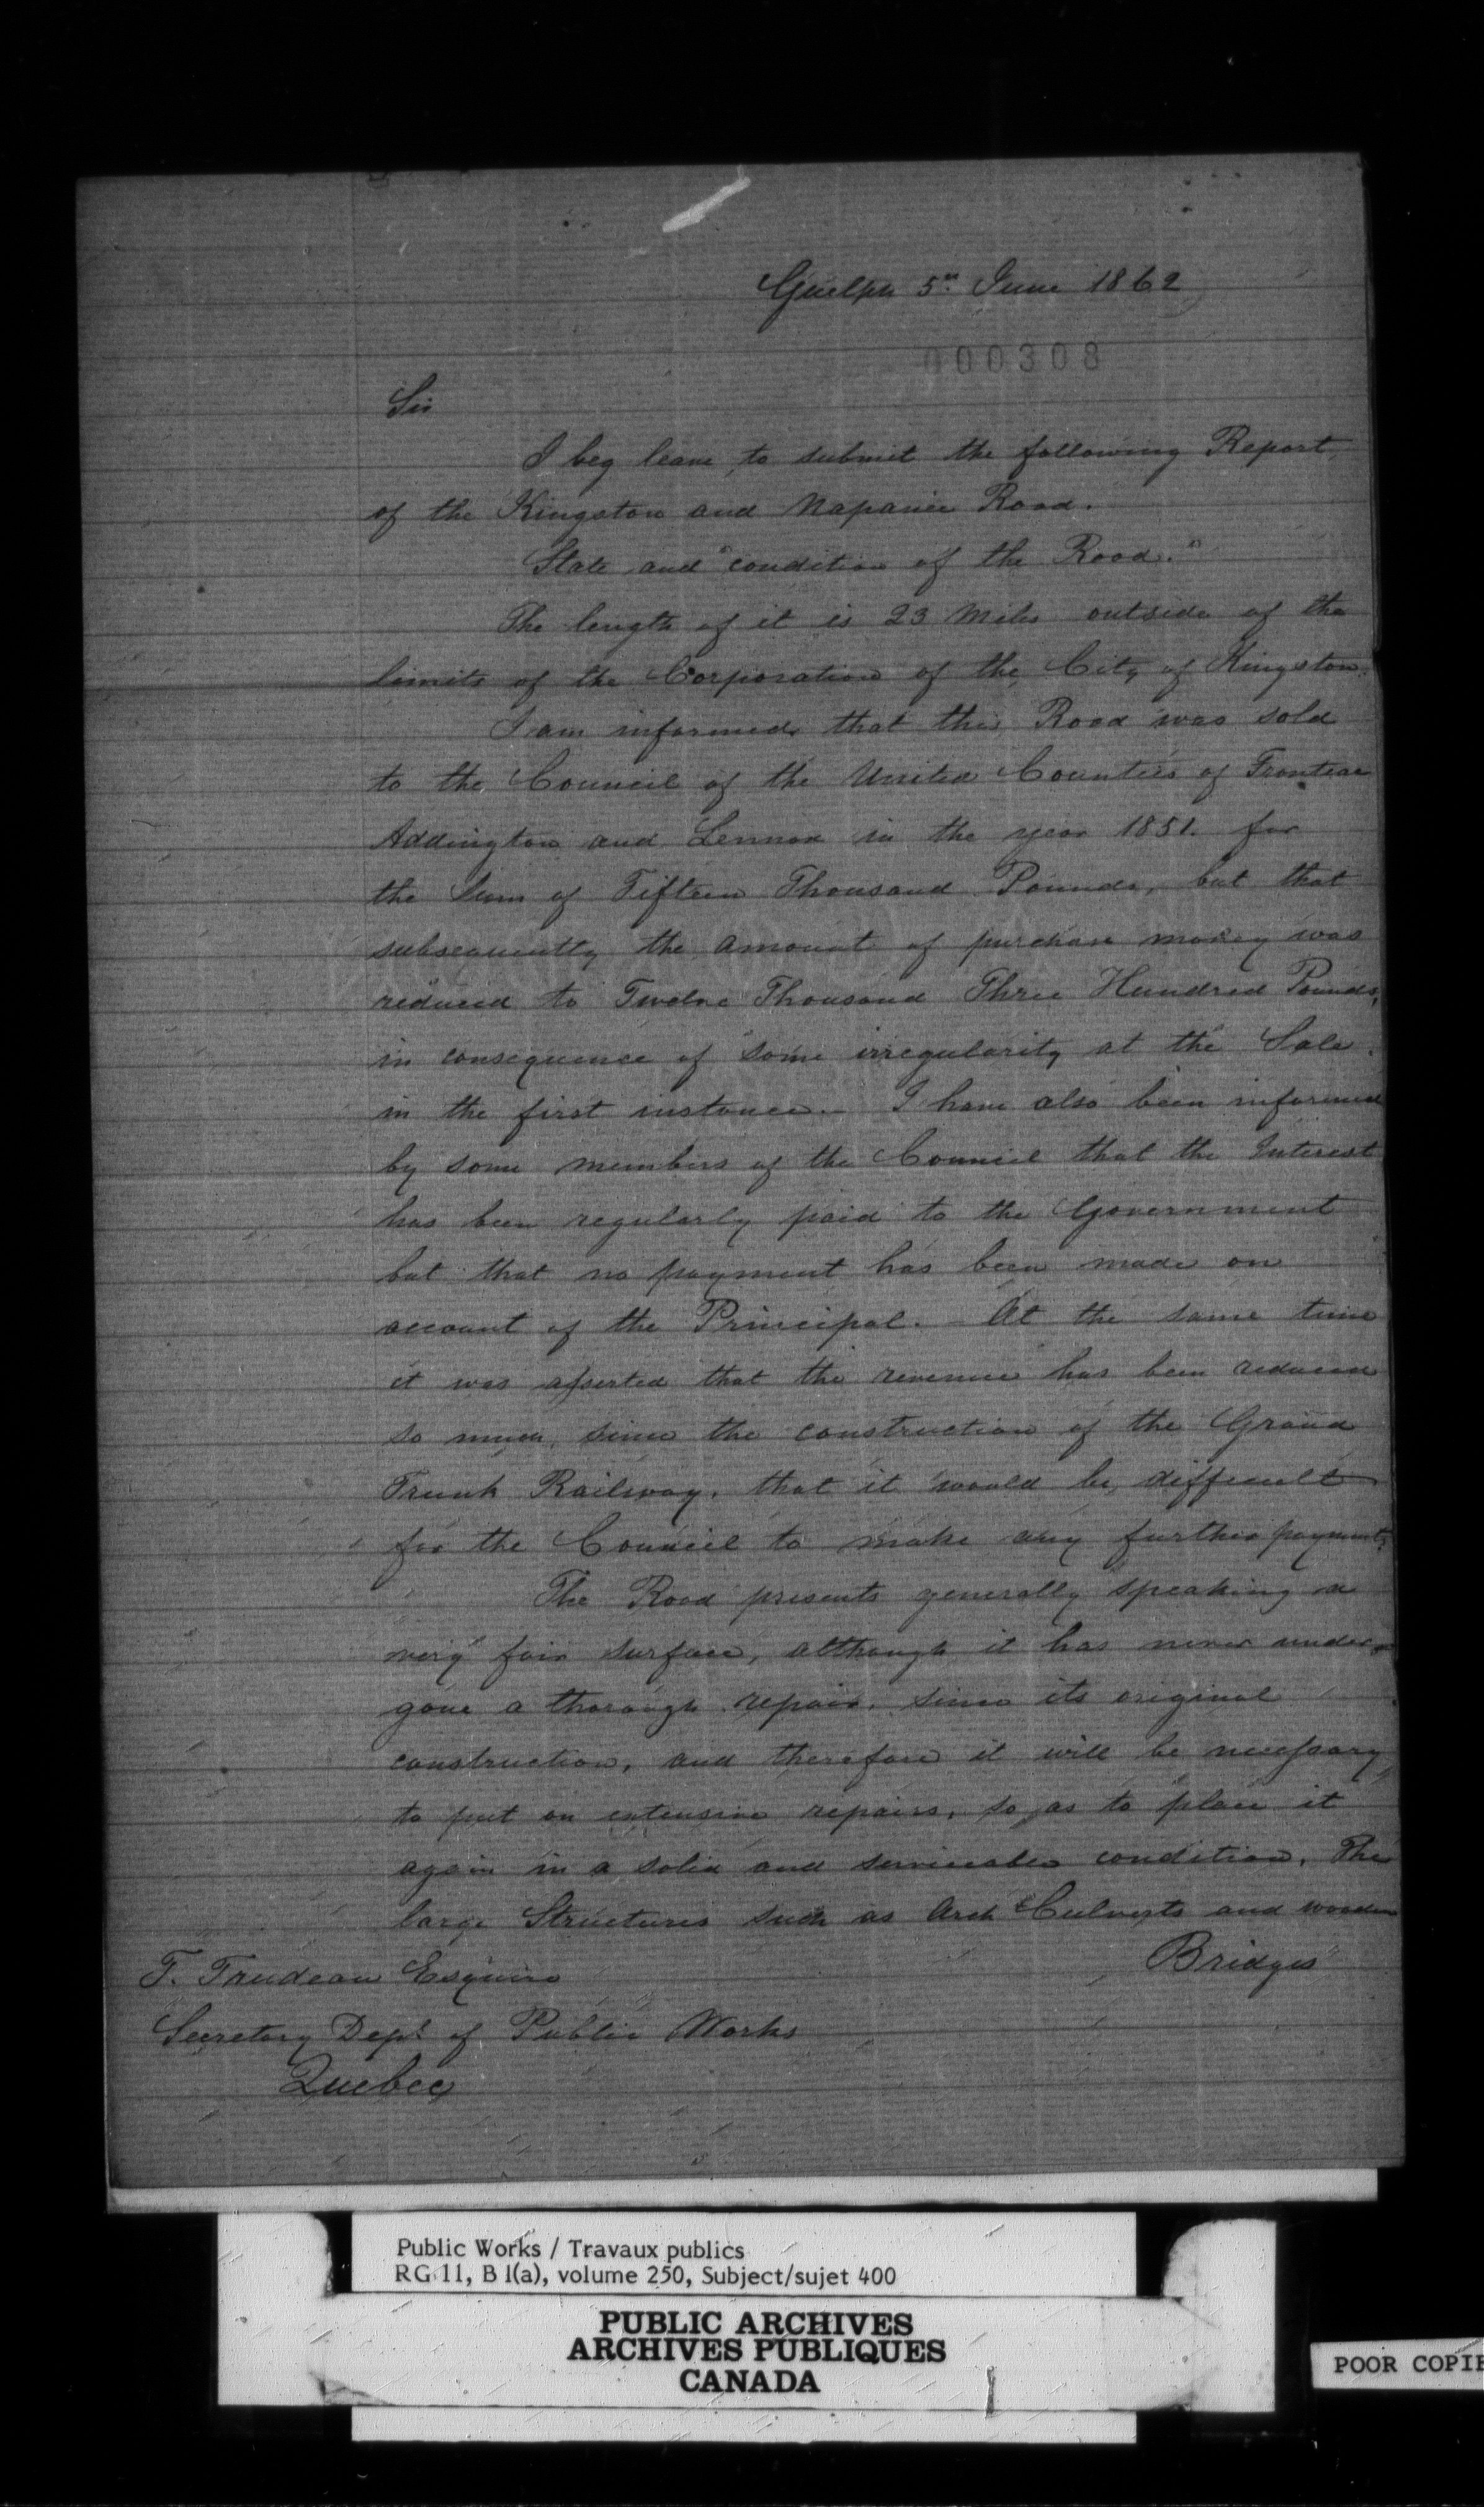 Guelph 5th June 1862
000308
Sir
I beg leave to submit the following Report
of the Kingston and Napanee Road.
State and "condition of the Road."
The length of it is 23 Miles outside of the
limits of the Corporation of the City of Kingston.
I am informed that this Road was sold
to the Council of the United Counties of Frontenac
Addington and Lennox in the year 1851. for
the Sum of Fifteen Thousand Pounds, but that
subsequently the amount of purchase money was
reduced to Twelve Thousand Three Hundred Pounds,
in consequence of some irregularity at the Sale.
in the first instance. - I have also been informed
by some members of the Council that the Interest
has been regularly paid to the Government
but that no payment has been made on
account of the Principal. - At the same time
it was asserted that the revenue has been reduced
so much, since the construction of the Grand
Trunk Railway, that it would be difficult
for the Council to make any further payments.
The Road presents generally speaking a
very fair surface, although it has never under-
gone a thorough repair, since its original
construction, and therefore it will be necessary,
to put on extensive repairs, so as to place it
again in a solid and serviceable condition. The
large Structures such as Arch Culverts and wooden
Bridges
T. Trudeau Esquire
Secretary Dept of Public Works
Quebec
Public Works / Travaux publics
RG 11, B 1(a), volume 250, Subject/sujet 400
PUBLIC ARCHIVES
ARCHIVES PUBLIQUES
CANADA
POOR COPIE